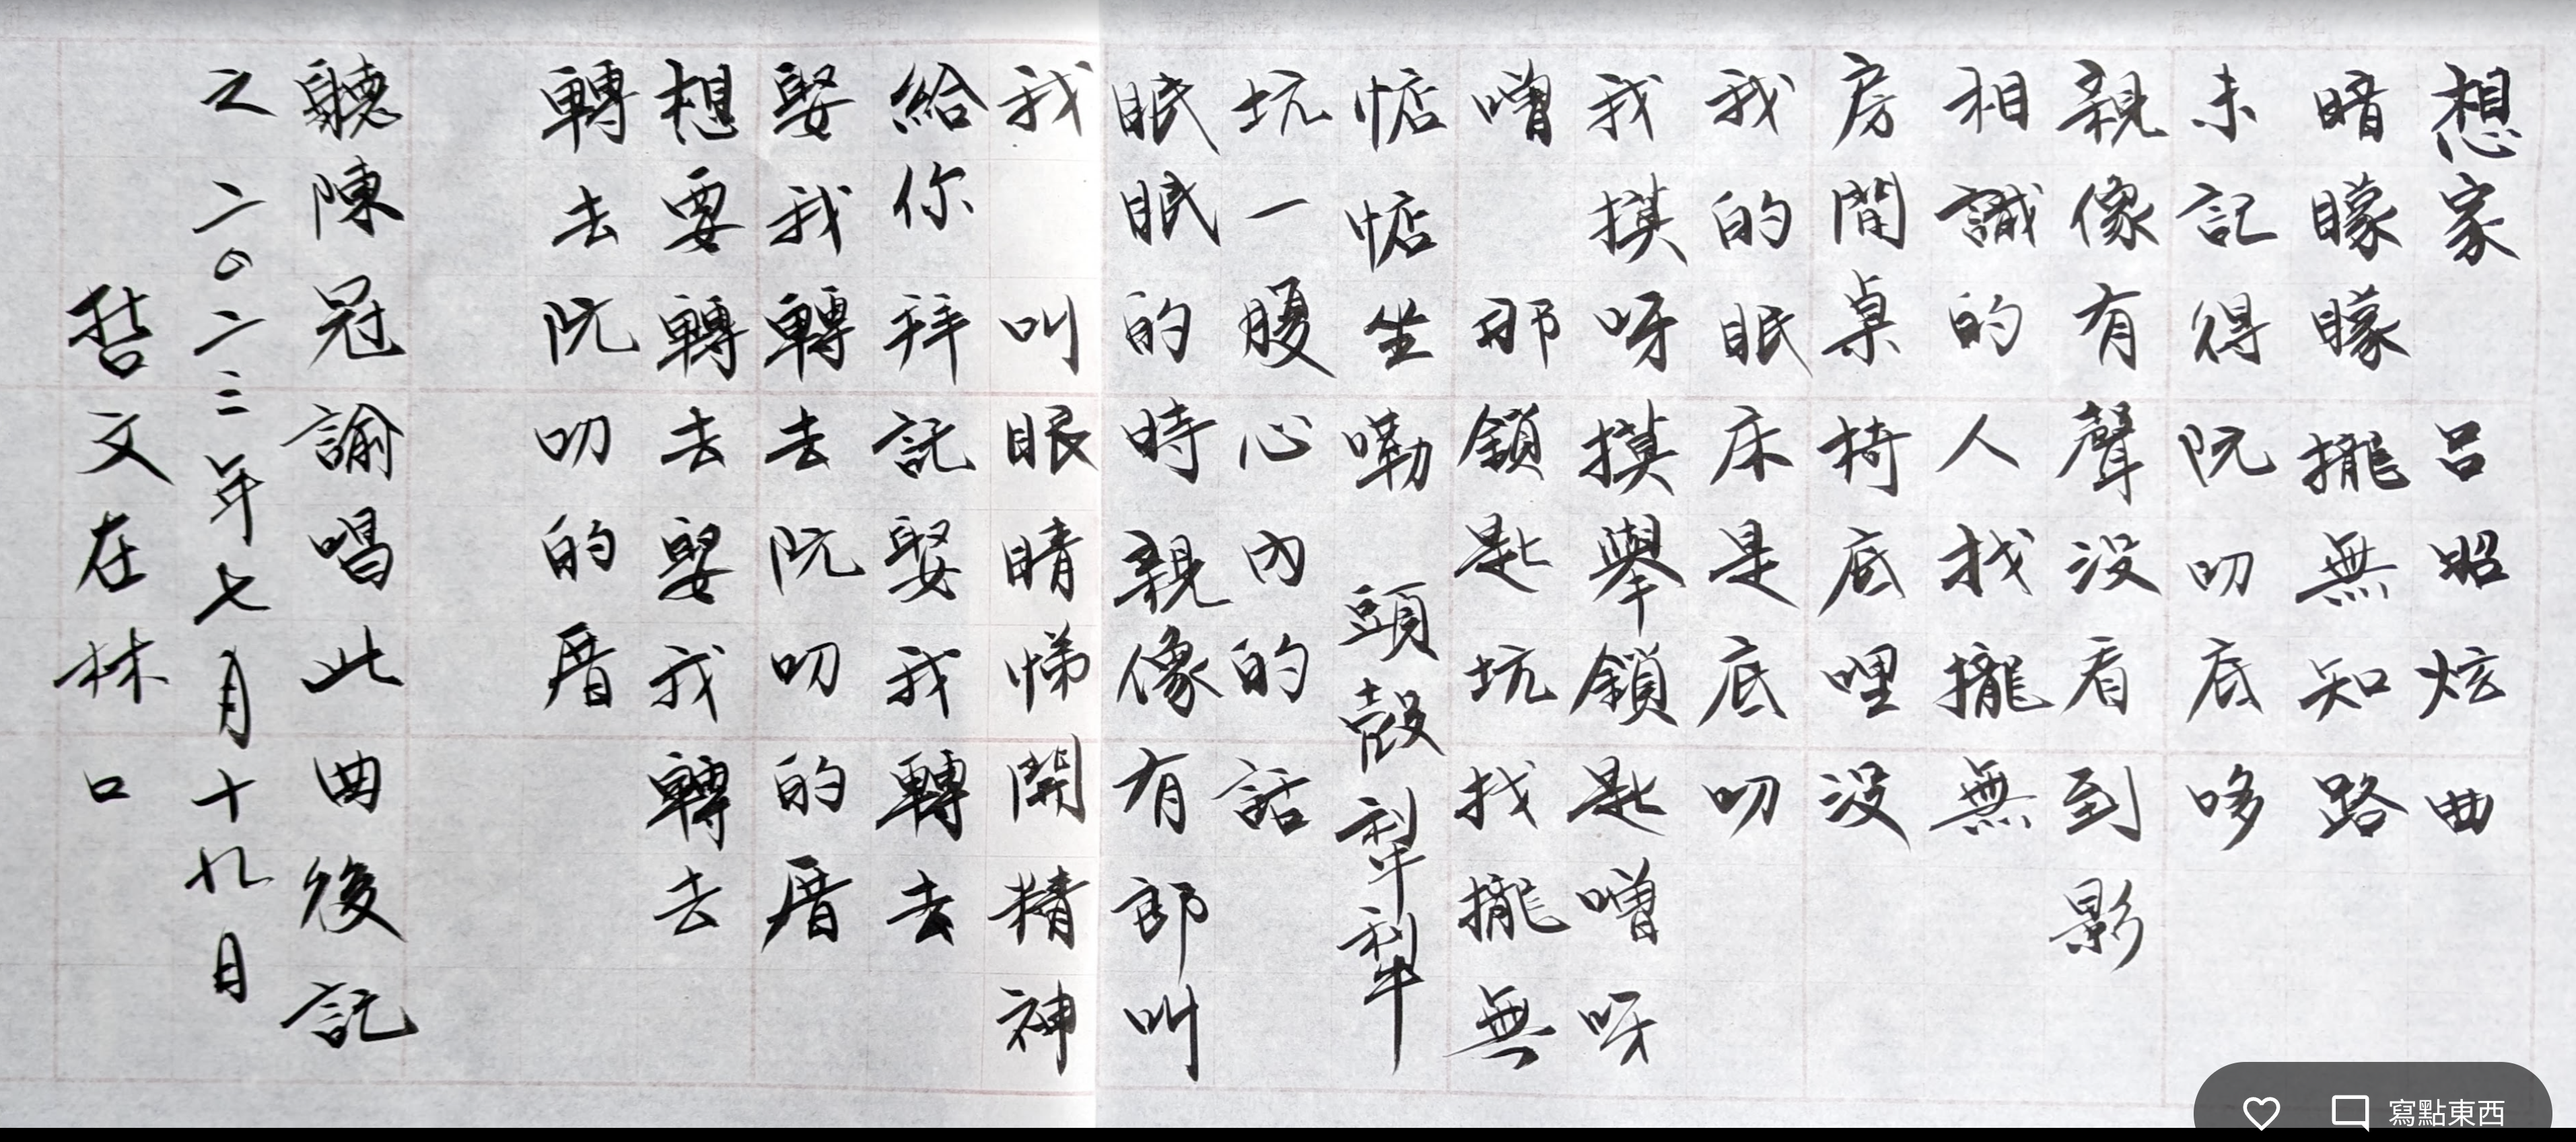 想家 呂昭炫曲
暗矇矇攏無知路
未記得阮叨底哆
親像有聲沒看到影
相識的人找攏無
房間桌椅底哩沒
我的眠床是底叨
我摸呀摸舉鎖匙噌呀
噌 那鎖匙坑找攏無
惦惦坐嘞 頭殼犁犁
坑一腹心內的話
眠眠的時親像有郎叫
我 叫眼睛悌開精神
給你拜託娶我轉去
娶我轉轉去阮叨的厝
想要轉轉去娶我轉去
轉去阮叨的厝
聽陳冠諭唱此曲後記
之 二〇二三年七月十九日
哲文在林口
寫點東西